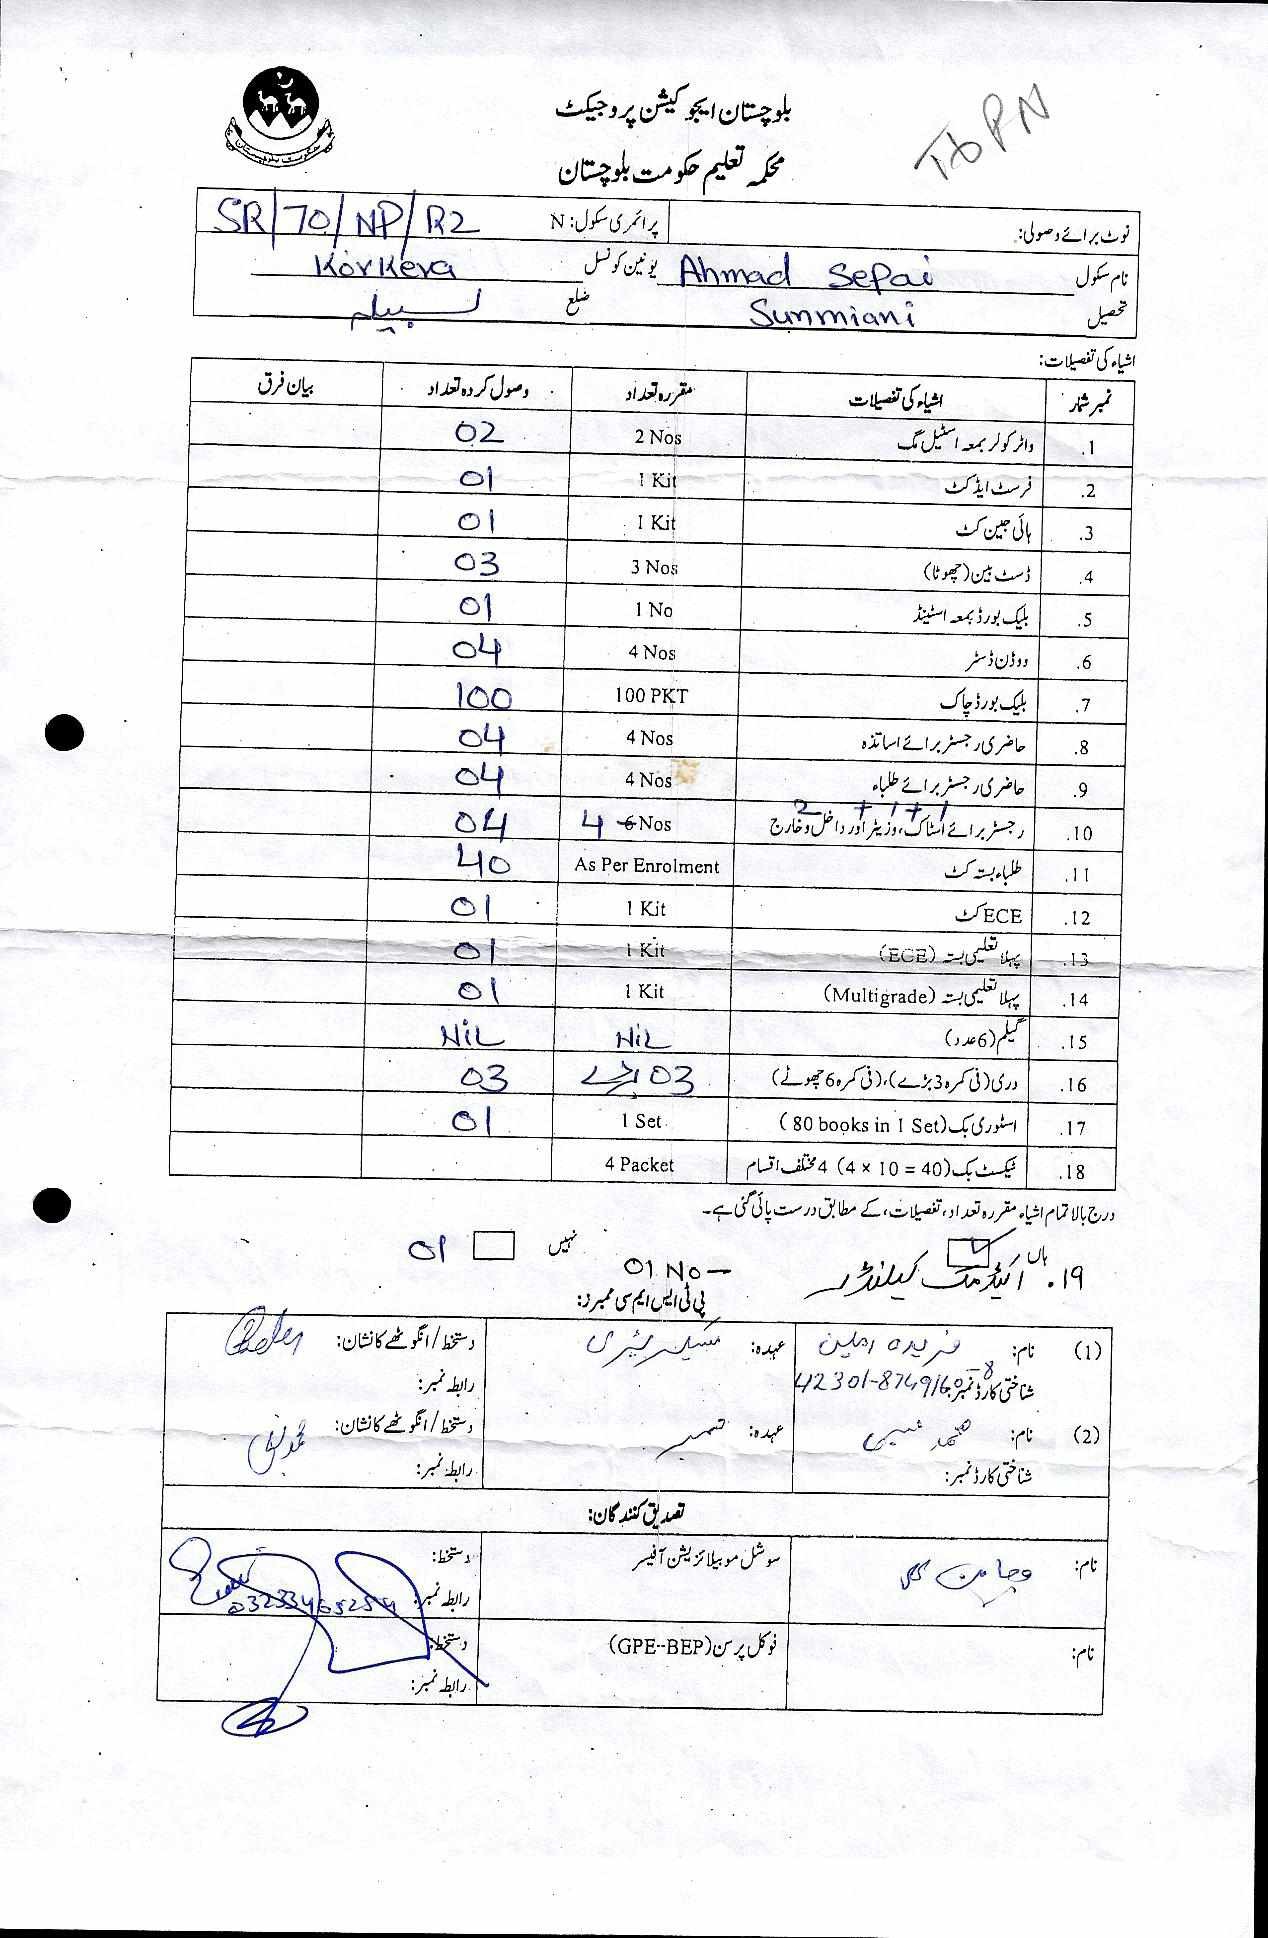 بلوچستان ایجوکیشن پروجیکٹ
TbPN
محکمہ تعلیم حکومت بلوچستان
نوٹ برائے وصولی: پرائمری سکول: N SR/70/NP/R2
نام سکول Ahmad Sepai یونین کونسل Korkera
تحصیل Sunmiani ضلع لسبیلہ
اشیاء کی تفصیلات:
نمبر شمار اشیاء کی تفصیلات مقررہ تعداد وصول کردہ تعداد بیان فرق
1. واٹر کولر بمعہ اسٹیل مگ 2 Nos 02
2. فرسٹ ایڈ کٹ 1 Kit 01
3. ہائی جین کٹ 1 Kit 01
4. ڈسٹ بین (چھوٹا) 3 Nos 03
5. بلیک بورڈ بمعہ اسٹینڈ 1 No 01
6. ووڈن ڈسٹر 4 Nos 04
7. بلیک بورڈ چاک 100 PKT 100
8. حاضری رجسٹر برائے اساتذہ 4 Nos 04
9. حاضری رجسٹر برائے طلباء 4 Nos 04
2 + 1 + 1
10. رجسٹر برائے اسٹاک، وزیٹر اور داخل و خارج 4 6 Nos 04
11. طلباء بستہ کٹ As Per Enrolment 40
12. ECE کٹ 1 Kit 01
13. پہلا تعلیمی بستہ (ECE) 1 Kit 01
14. پہلا تعلیمی بستہ (Multigrade) 1 Kit 01
15. گیلم (6 عدد) NiL NiL
16. دری (فی کمرہ 3 بڑے)، (فی کمرہ 6 چھوٹے) 03 بڑے 03
17. اسٹوری بک (80 books in 1 Set) 1 Set 01
18. ٹیکسٹ بک (4 x 10 = 40) 4 مختلف اقسام 4 Packet
درج بالا تمام اشیاء مقررہ تعداد، تفصیلات، کے مطابق درست پائی گئی ہے۔
ہاں نہیں
۱۹. اکیڈمک کیلنڈر 01 No 01
پی ٹی ایس ایم سی ممبرز:
(1) نام: فریدہ عہدہ: سیکریٹری دستخط/انگوٹھے کا نشان:
شناختی کارڈ نمبر: 42301-8749160-8 رابطہ نمبر:
(2) نام: محمد عہدہ: ممبر دستخط/انگوٹھے کا نشان:
شناختی کارڈ نمبر: رابطہ نمبر:
تصدیق کنندگان:
نام: سوشل موبیلائزیشن آفیسر دستخط:
رابطہ نمبر:
نام: فوکل پرسن (GPE--BEP) دستخط:
رابطہ نمبر: